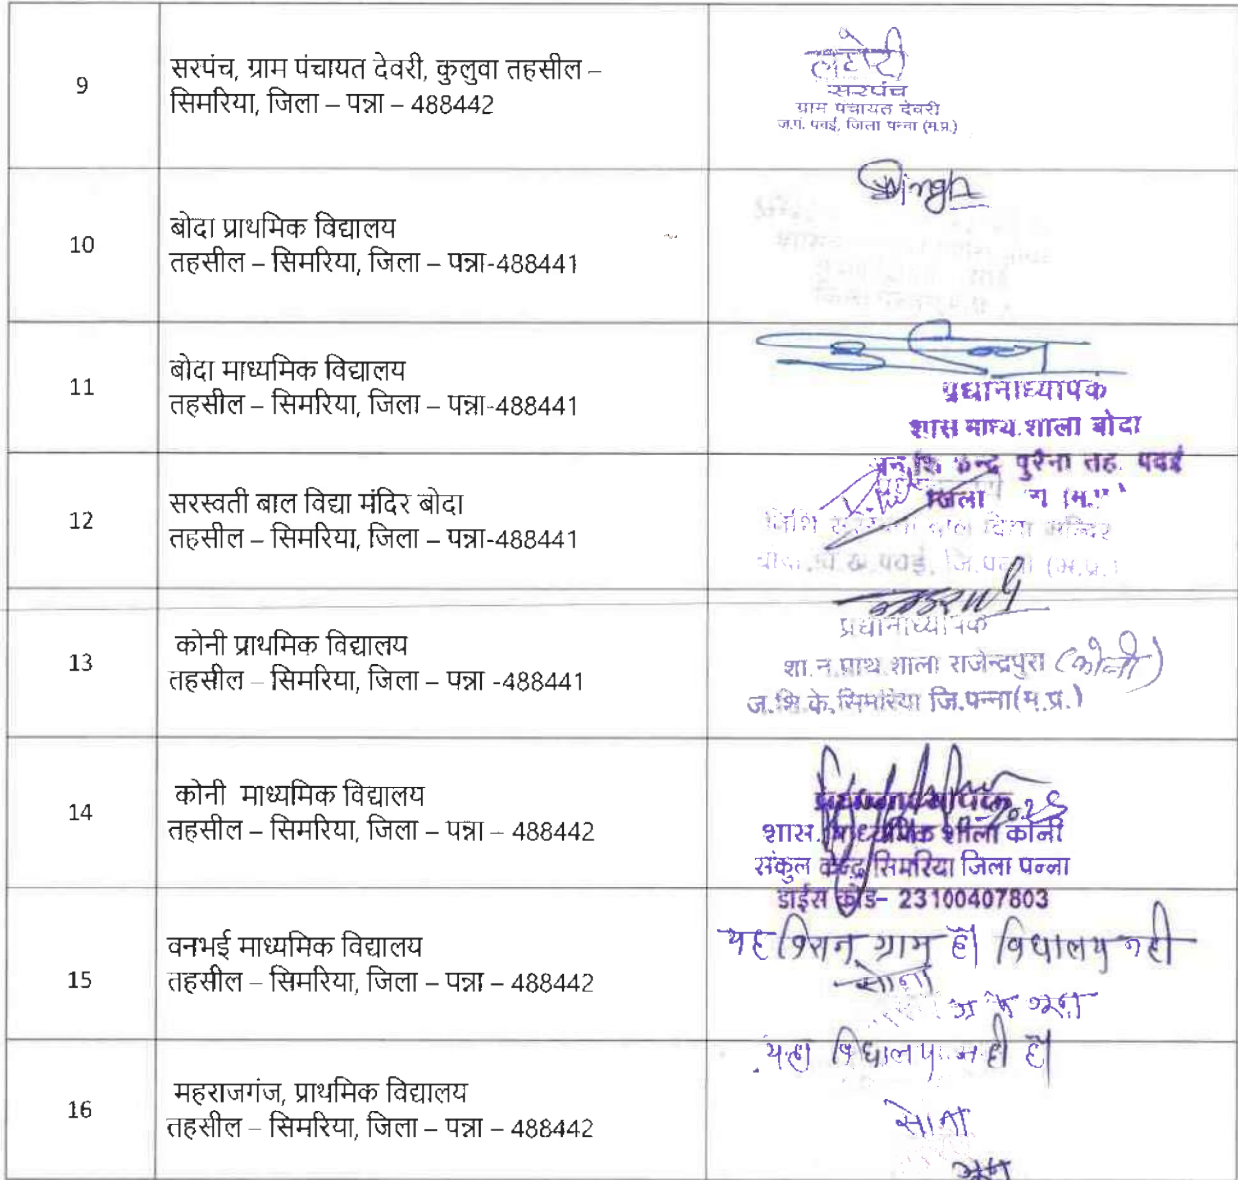 9
सरपंच, ग्राम पंचायत देवरी, कुलुवा तहसील –
सिमरिया, जिला – पन्ना – 488442
सरपंच
ग्राम पंचायत देवरी
ज.पं. पवई, जिला पन्ना (म.प्र.)
10
बोदा प्राथमिक विद्यालय
तहसील – सिमरिया, जिला – पन्ना-488441
Singh
11
बोदा माध्यमिक विद्यालय
तहसील – सिमरिया, जिला – पन्ना-488441
प्रधानाध्यापक
शास माध्य.शाला बोदा
केन्द्र पुरैना तह. पवई
जिला
12
सरस्वती बाल विद्या मंदिर बोदा
तहसील – सिमरिया, जिला – पन्ना-488441
13
कोनी प्राथमिक विद्यालय
तहसील – सिमरिया, जिला – पन्ना -488441
प्रधानाध्यापक
शा.न.प्राथ.शाला राजेन्द्रपुरा (कोनी)
ज.शि.के.सिमरिया जि.पन्ना(म.प्र.)
14
कोनी माध्यमिक विद्यालय
तहसील – सिमरिया, जिला – पन्ना – 488442
प्रधानाध्यापक
शास. माध्यमिक शाला कोनी
संकुल केन्द्र सिमरिया जिला पन्ना
डाईस कोड– 23100407803
15
वनभई माध्यमिक विद्यालय
तहसील – सिमरिया, जिला – पन्ना – 488442
यह ग्राम है। विधालय नही
16
महराजगंज, प्राथमिक विद्यालय
तहसील – सिमरिया, जिला – पन्ना – 488442
यहा विधालय नही है।